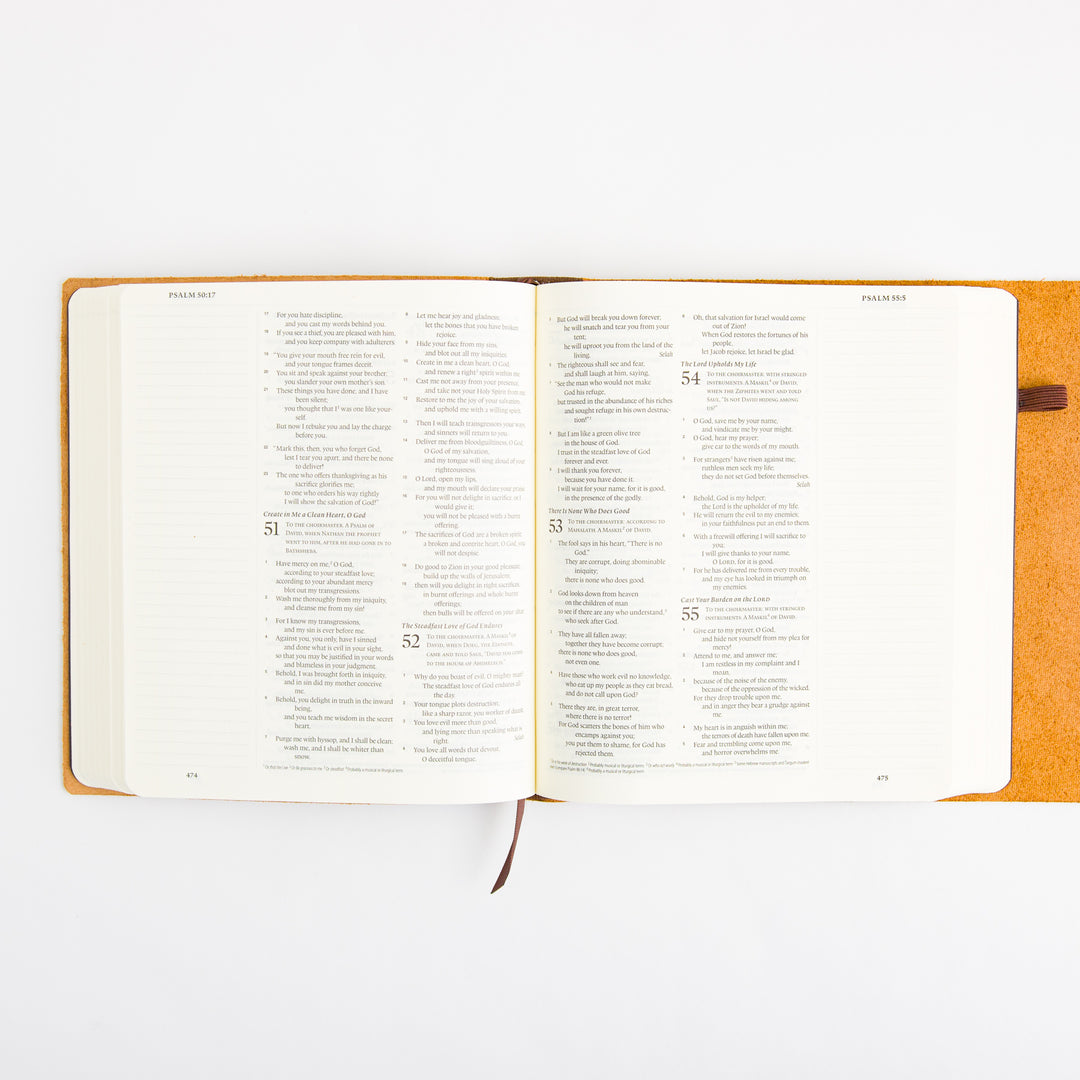 PSALM 50:17
17 For you hate discipline,
and you cast my words behind you.
18 If you see a thief, you are pleased with him,
and you keep company with adulterers.
19 "You give your mouth free rein for evil,
and your tongue frames deceit.
20 You sit and speak against your brother;
you slander your own mother's son.
21 These things you have done, and I have
been silent;
you thought that I¹ was one like your-
self.
But now I rebuke you and lay the charge
before you.
22 "Mark this, then, you who forget God,
lest I tear you apart, and there be none
to deliver!
23 The one who offers thanksgiving as his
sacrifice glorifies me;
to one who orders his way rightly
I will show the salvation of God!"
Create in Me a Clean Heart, O God
51 TO THE CHOIRMASTER. A PSALM OF
DAVID, WHEN NATHAN THE PROPHET
WENT TO HIM, AFTER HE HAD GONE IN TO
BATHSHEBA.
1 Have mercy on me,² O God,
according to your steadfast love;
according to your abundant mercy
blot out my transgressions.
2 Wash me thoroughly from my iniquity,
and cleanse me from my sin!
3 For I know my transgressions,
and my sin is ever before me.
4 Against you, you only, have I sinned
and done what is evil in your sight,
so that you may be justified in your words
and blameless in your judgment.
5 Behold, I was brought forth in iniquity,
and in sin did my mother conceive
me.
6 Behold, you delight in truth in the inward
being,
and you teach me wisdom in the secret
heart.
7 Purge me with hyssop, and I shall be clean;
wash me, and I shall be whiter than
snow.
8 Let me hear joy and gladness;
let the bones that you have broken
rejoice.
9 Hide your face from my sins,
and blot out all my iniquities.
10 Create in me a clean heart, O God,
and renew a right³ spirit within me.
11 Cast me not away from your presence,
and take not your Holy Spirit from me.
12 Restore to me the joy of your salvation,
and uphold me with a willing spirit.
13 Then I will teach transgressors your ways,
and sinners will return to you.
14 Deliver me from bloodguiltiness, O God,
O God of my salvation,
and my tongue will sing aloud of your
righteousness.
15 O Lord, open my lips,
and my mouth will declare your praise.
16 For you will not delight in sacrifice, or I
would give it;
you will not be pleased with a burnt
offering.
17 The sacrifices of God are a broken spirit;
a broken and contrite heart, O God, you
will not despise.
18 Do good to Zion in your good pleasure;
build up the walls of Jerusalem;
19 then will you delight in right sacrifices,
in burnt offerings and whole burnt
offerings;
then bulls will be offered on your altar.
The Steadfast Love of God Endures
52 TO THE CHOIRMASTER. A MASKIL⁴ OF
DAVID, WHEN DOEG, THE EDOMITE,
CAME AND TOLD SAUL, "DAVID HAS COME
TO THE HOUSE OF AHIMELECH."
1 Why do you boast of evil, O mighty man?
The steadfast love of God endures all
the day.
2 Your tongue plots destruction,
like a sharp razor, you worker of deceit.
3 You love evil more than good,
and lying more than speaking what is
right. Selah
4 You love all words that devour,
O deceitful tongue.
474
PSALM 55:5
5 But God will break you down forever;
he will snatch and tear you from your
tent;
he will uproot you from the land of the
living. Selah
6 The righteous shall see and fear,
and shall laugh at him, saying,
7 "See the man who would not make
God his refuge,
but trusted in the abundance of his riches
and sought refuge in his own destruc-
tion!"¹
8 But I am like a green olive tree
in the house of God.
I trust in the steadfast love of God
forever and ever.
9 I will thank you forever,
because you have done it.
I will wait for your name, for it is good,
in the presence of the godly.
There Is None Who Does Good
53 TO THE CHOIRMASTER: ACCORDING TO
MAHALATH. A MASKIL² OF DAVID.
1 The fool says in his heart, "There is no
God."
They are corrupt, doing abominable
iniquity;
there is none who does good.
2 God looks down from heaven
on the children of man
to see if there are any who understand,³
who seek after God.
3 They have all fallen away;
together they have become corrupt;
there is none who does good,
not even one.
4 Have those who work evil no knowledge,
who eat up my people as they eat bread,
and do not call upon God?
5 There they are, in great terror,
where there is no terror!
For God scatters the bones of him who
encamps against you;
you put them to shame, for God has
rejected them.
6 Oh, that salvation for Israel would come
out of Zion!
When God restores the fortunes of his
people,
let Jacob rejoice, let Israel be glad.
The Lord Upholds My Life
54 TO THE CHOIRMASTER: WITH STRINGED
INSTRUMENTS. A MASKIL⁴ OF DAVID,
WHEN THE ZIPHITES WENT AND TOLD
SAUL, "IS NOT DAVID HIDING AMONG
US?"
1 O God, save me by your name,
and vindicate me by your might.
2 O God, hear my prayer;
give ear to the words of my mouth.
3 For strangers⁵ have risen against me;
ruthless men seek my life;
they do not set God before themselves.
Selah
4 Behold, God is my helper;
the Lord is the upholder of my life.
5 He will return the evil to my enemies;
in your faithfulness put an end to them.
6 With a freewill offering I will sacrifice to
you;
I will give thanks to your name,
O LORD, for it is good.
7 For he has delivered me from every trouble,
and my eye has looked in triumph on
my enemies.
Cast Your Burden on the LORD
55 TO THE CHOIRMASTER: WITH STRINGED
INSTRUMENTS. A MASKIL⁶ OF DAVID.
1 Give ear to my prayer, O God,
and hide not yourself from my plea for
mercy!
2 Attend to me, and answer me;
I am restless in my complaint and I
moan,
3 because of the noise of the enemy,
because of the oppression of the wicked.
For they drop trouble upon me,
and in anger they bear a grudge against
me.
4 My heart is in anguish within me;
the terrors of death have fallen upon me.
5 Fear and trembling come upon me,
and horror overwhelms me.
475